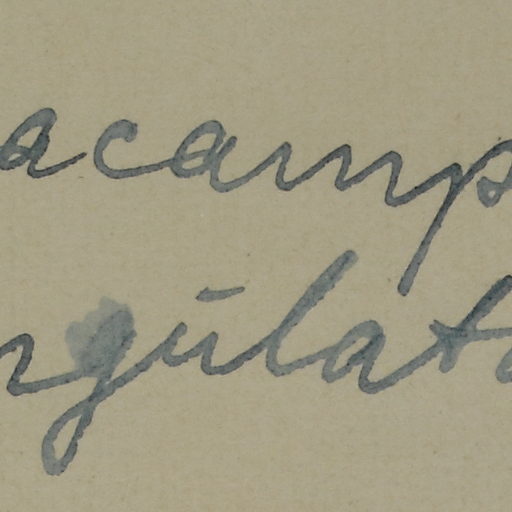 acamp
ngūlat